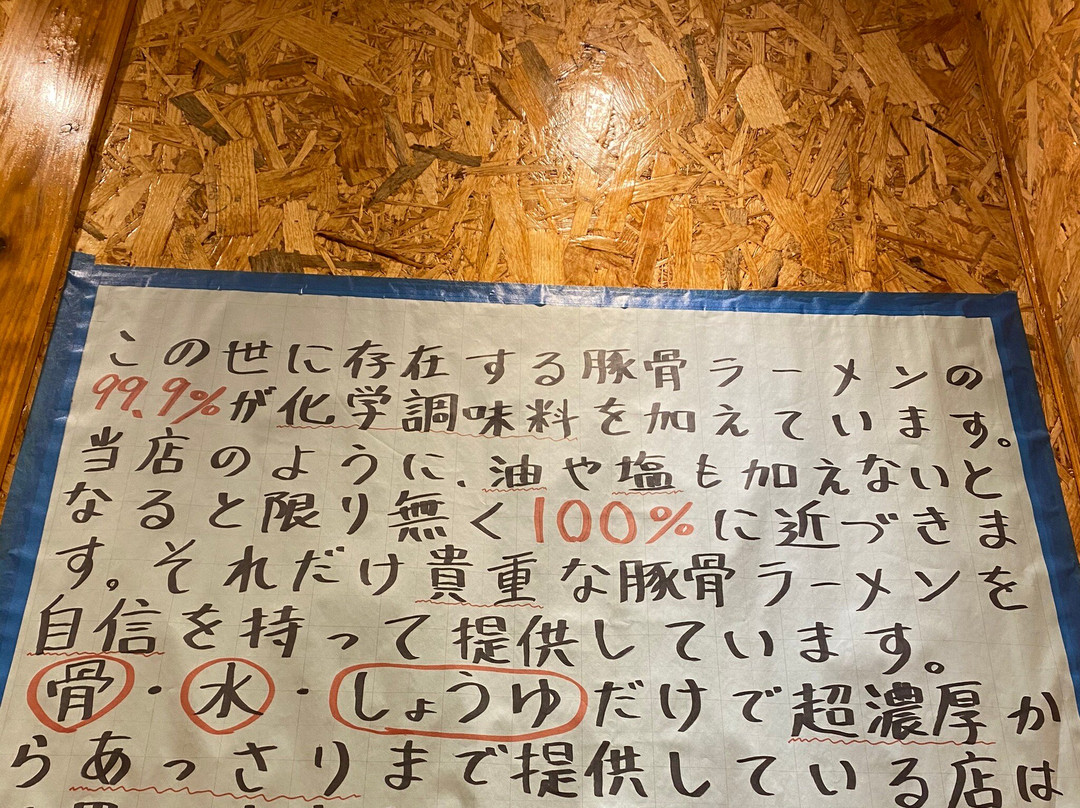 この世に存在する豚骨ラーメンの
99.9%が化学調味料を加えています。
当店のように、油や塩も加えないと
なると限り無く100%に近づきま
す。それだけ貴重な豚骨ラーメンを
自信を持って提供しています。
骨・水・しょうゆだけで超濃厚か
らあっさりまで提供している店は